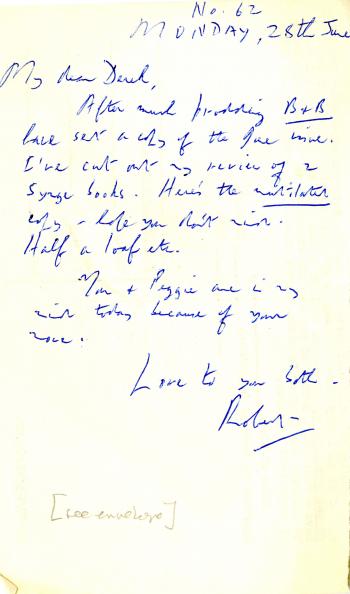 No. 62
MONDAY, 28th June
My dear Derek,
After much prodding B+B
have sent a copy of the June issue.
I've cut out my review of 2
Synge books. Here's the mutilated
copy - hope you don't mind.
Half a loaf etc.
You + Peggie are in my
mind today because of your
move.
Love to you both -
Robert -
[see envelope]